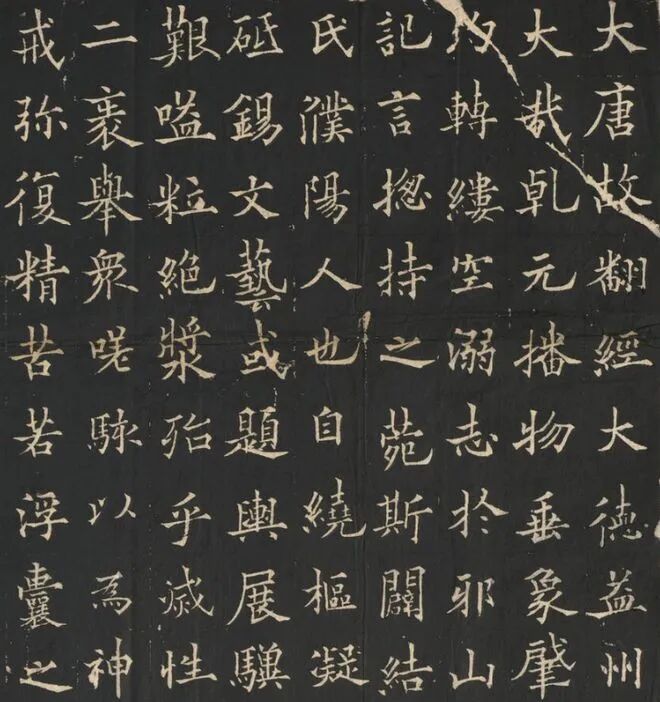 大唐故翻經大德益州
大哉乹元播物垂象肇
轉縷空溺志於邪山
記言揔持之菀斯闢結
氏濮陽人也自繞樞凝
砥錫文藝或題輿展驥
艱嗌粒絕漿殆乎滅性
二裹舉衆嗟駭以為神
戒弥復精苦若浮囊之